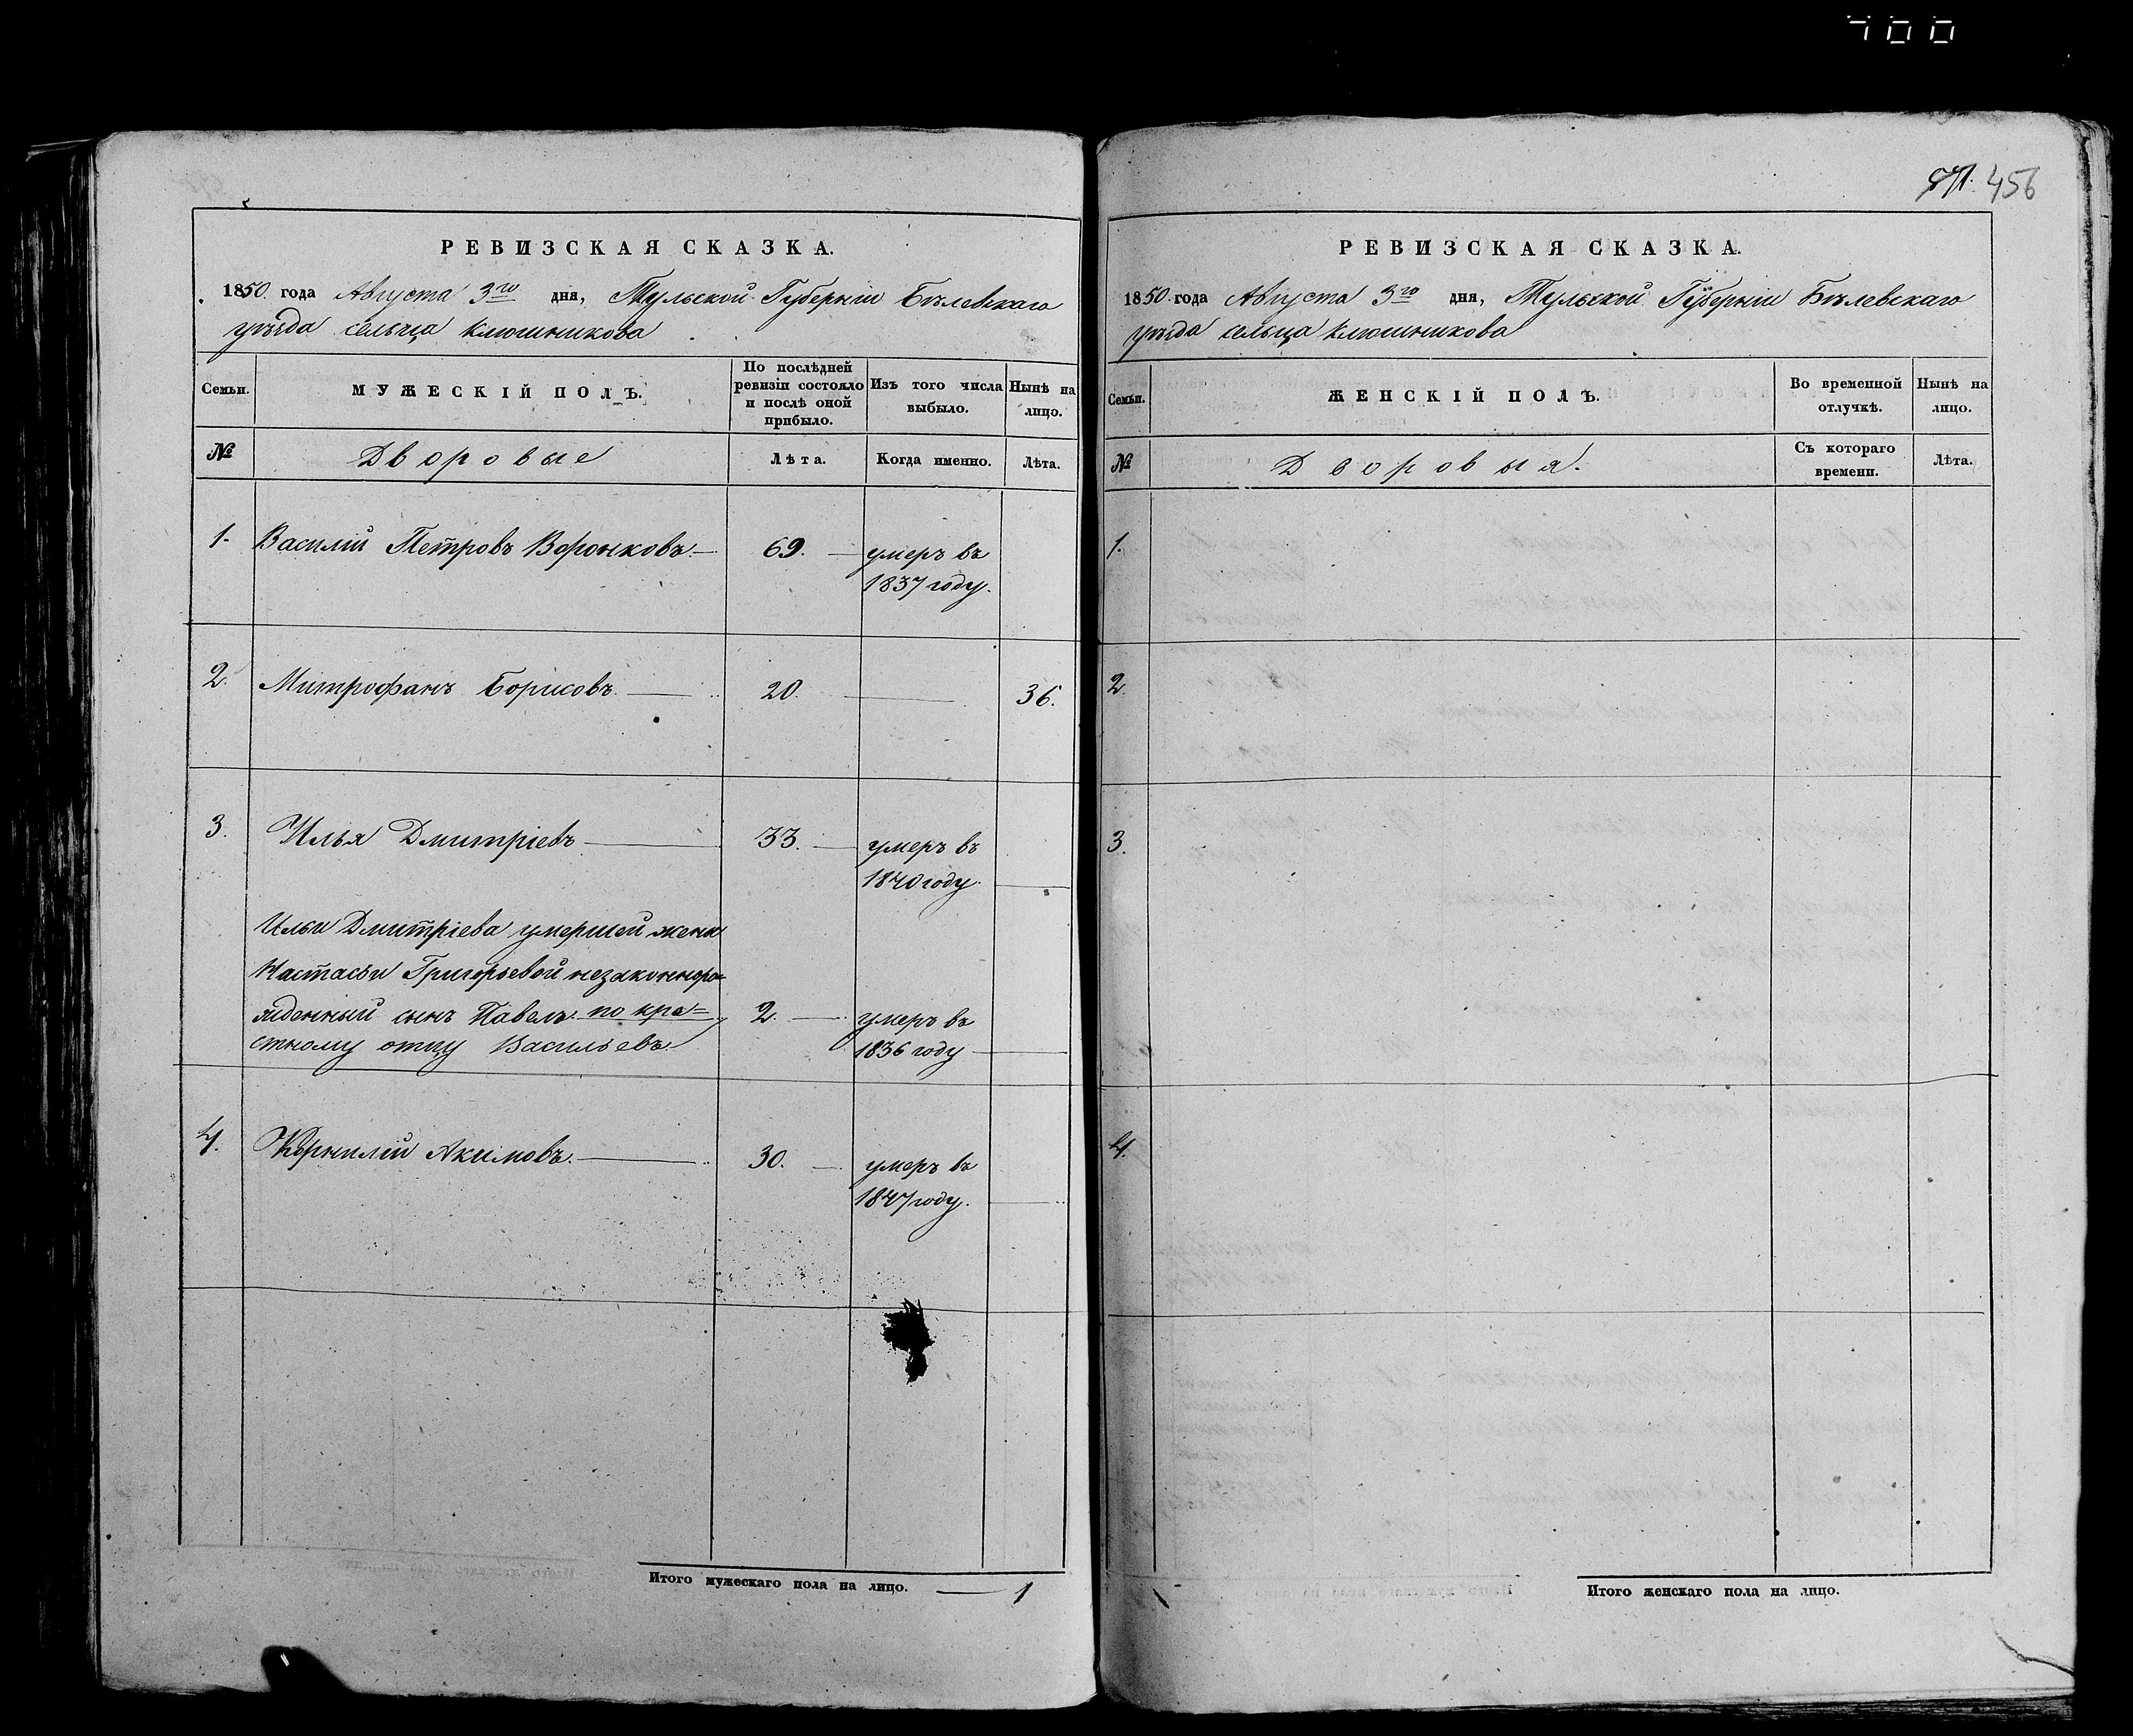 400
456
РЕВИЗСКАЯ СКАЗКА.
1850 года Августа 3го дня, Тульской Губерніи Бѣлевскаго
уѣзда сельца Клюшникова
Семьи.
МУЖЕСКІЙ ПОЛЪ.
По послѣдней ревизіи состояло и послѣ оной прибыло.
Изъ того числа выбыло.
Нынѣ на лицо.
№
Дворовые
Лѣта.
Когда именно.
Лѣта.
1. Василій Петровъ Воронковъ. 69. умеръ въ
1837 году.
2. Митрофанъ Борисовъ 20. 36.
3. Илья Дмитріевъ 33. умеръ въ
1840 году.
Ильи Дмитріева умершей жены
Настасьи Григорьевой незаконноро=
жденный сынъ Павелъ по кре= 2. умеръ въ
стному отцу Васильевъ 1836 году
4. Корнилій Акимовъ. 30. умеръ въ
1847 году.
Итого мужескаго пола на лицо. 1
РЕВИЗСКАЯ СКАЗКА.
1850 года Августа 3го дня, Тульской Губерніи Бѣлевскаго
уѣзда сельца Клюшникова
Семьи.
ЖЕНСКІЙ ПОЛЪ.
Во временной отлучкѣ.
Нынѣ на лицо.
№
Дворовыя.
Съ котораго времени.
Лѣта.
1.
2.
3.
4.
Итого женскаго пола на лицо.